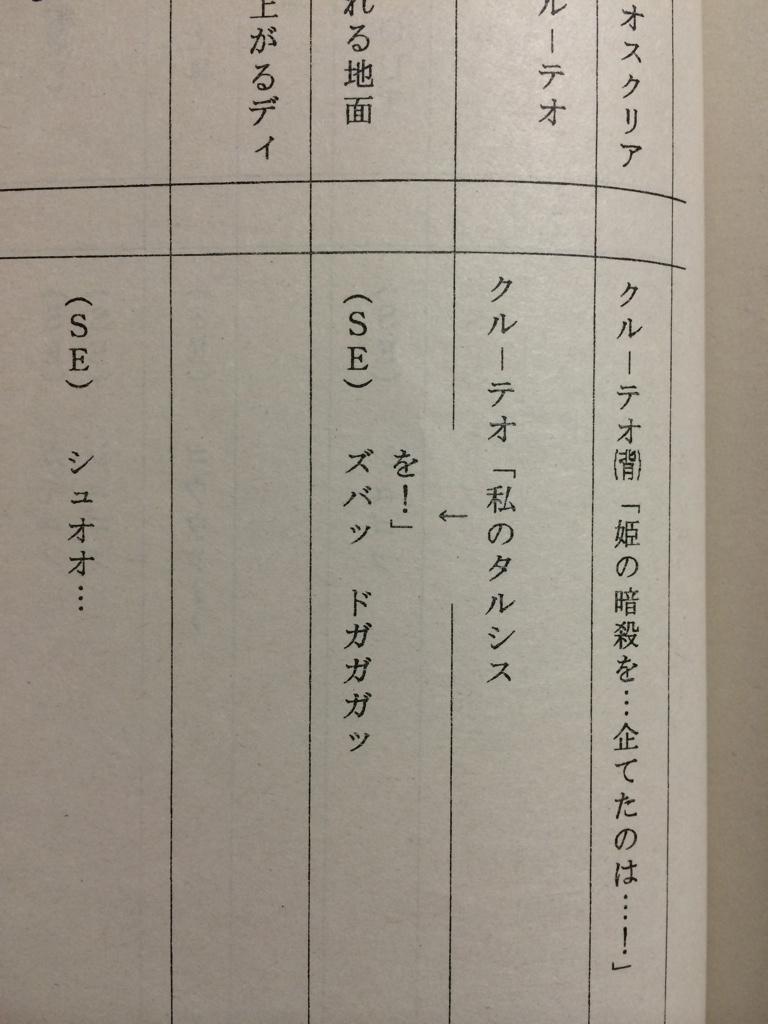 オスクリア
ルーテオ
れる地面
上がるディ
クルーテオ(背)「姫の暗殺を…企てたのは…！」
クルーテオ「私のタルシス
←
を！」
（ＳＥ） ズバッ ドガガガッ
（ＳＥ） シュオオ…